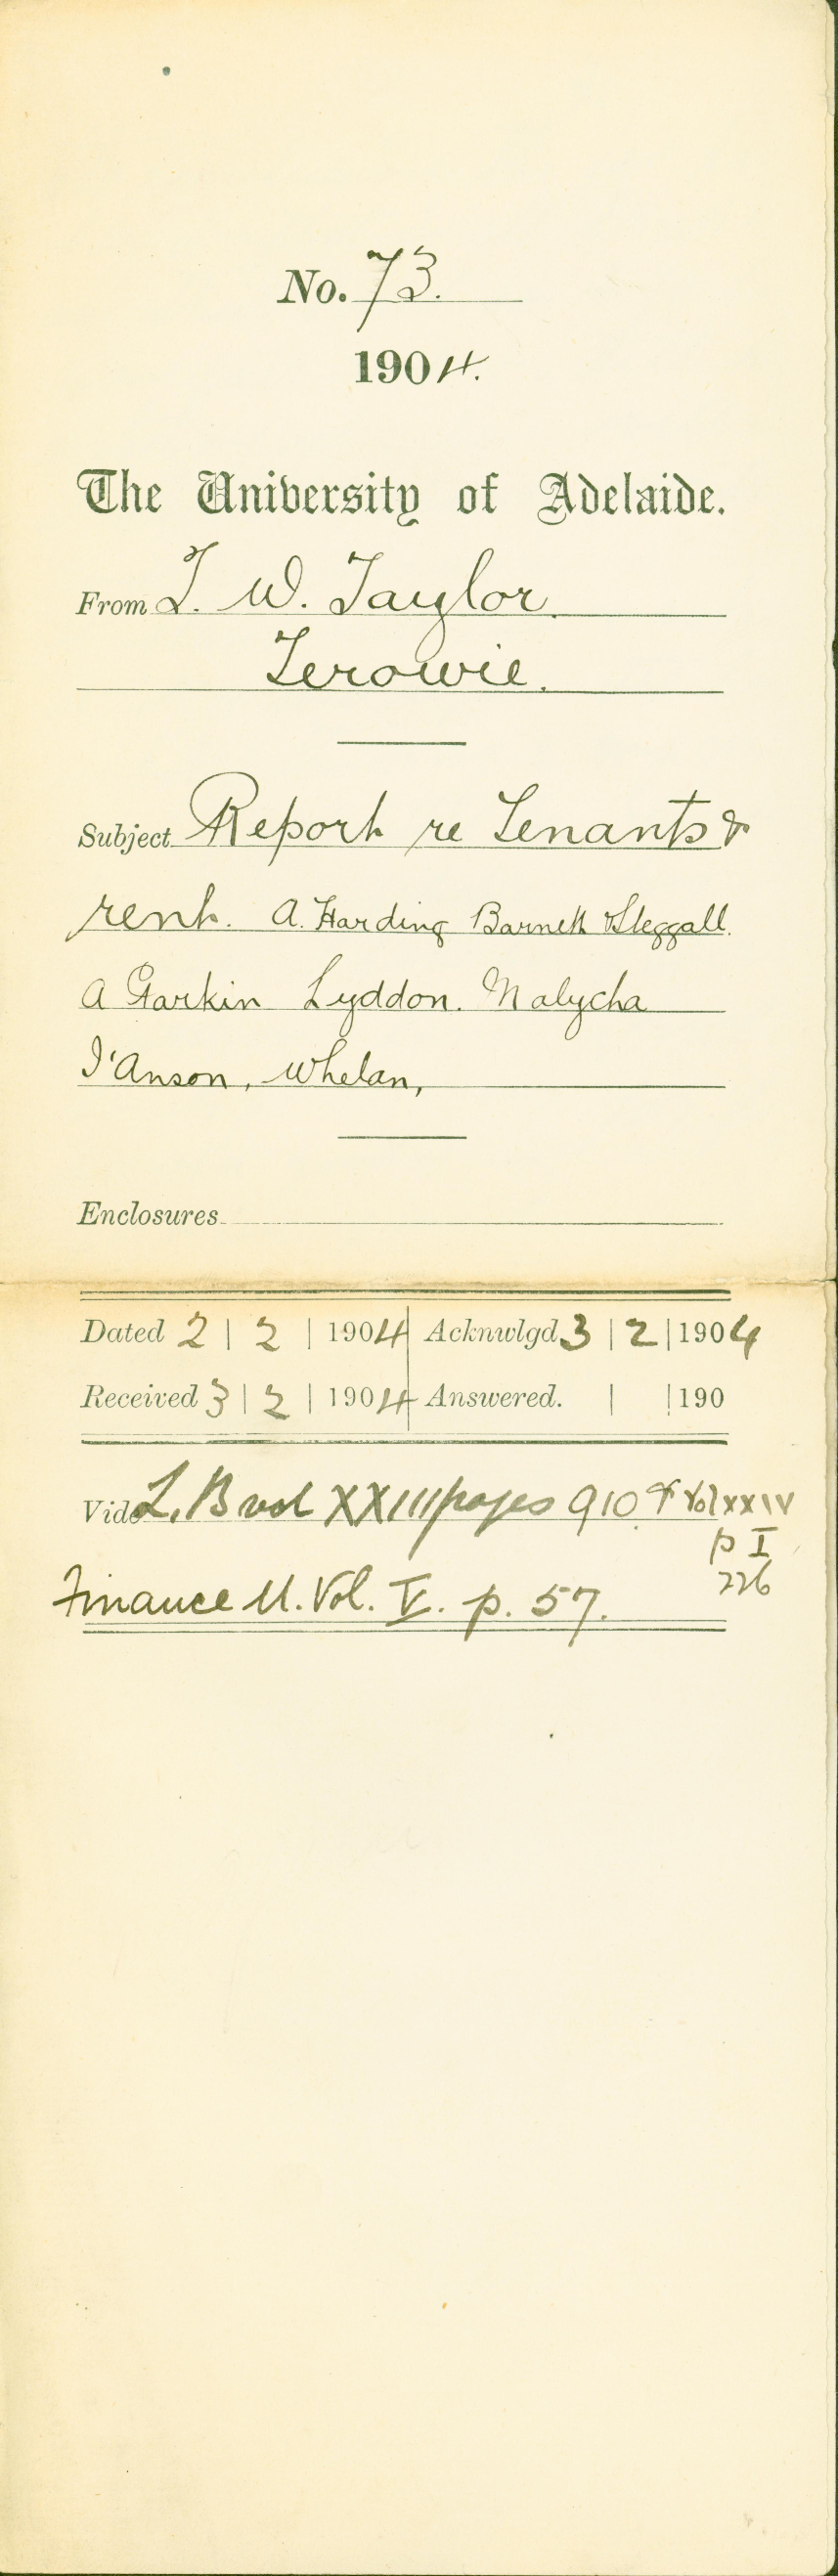 No. 73.
1904.
The University of Adelaide.
From T. W. Taylor
Terowie.
Subject Report re Tenants &
rent. A. Harding Barnett Sleggall.
A Garkin Lyddon. Malycha
I'Anson, Whelan,
Enclosures
Dated 2 | 2 | 1904 Acknwlgd 3 | 2 | 1904
Received 3 | 2 | 1904 Answered. | | 190
Vide L. B vol XXIII pages 910 & Vol XXIV
p I
226
Finance M. Vol. V. p. 57.